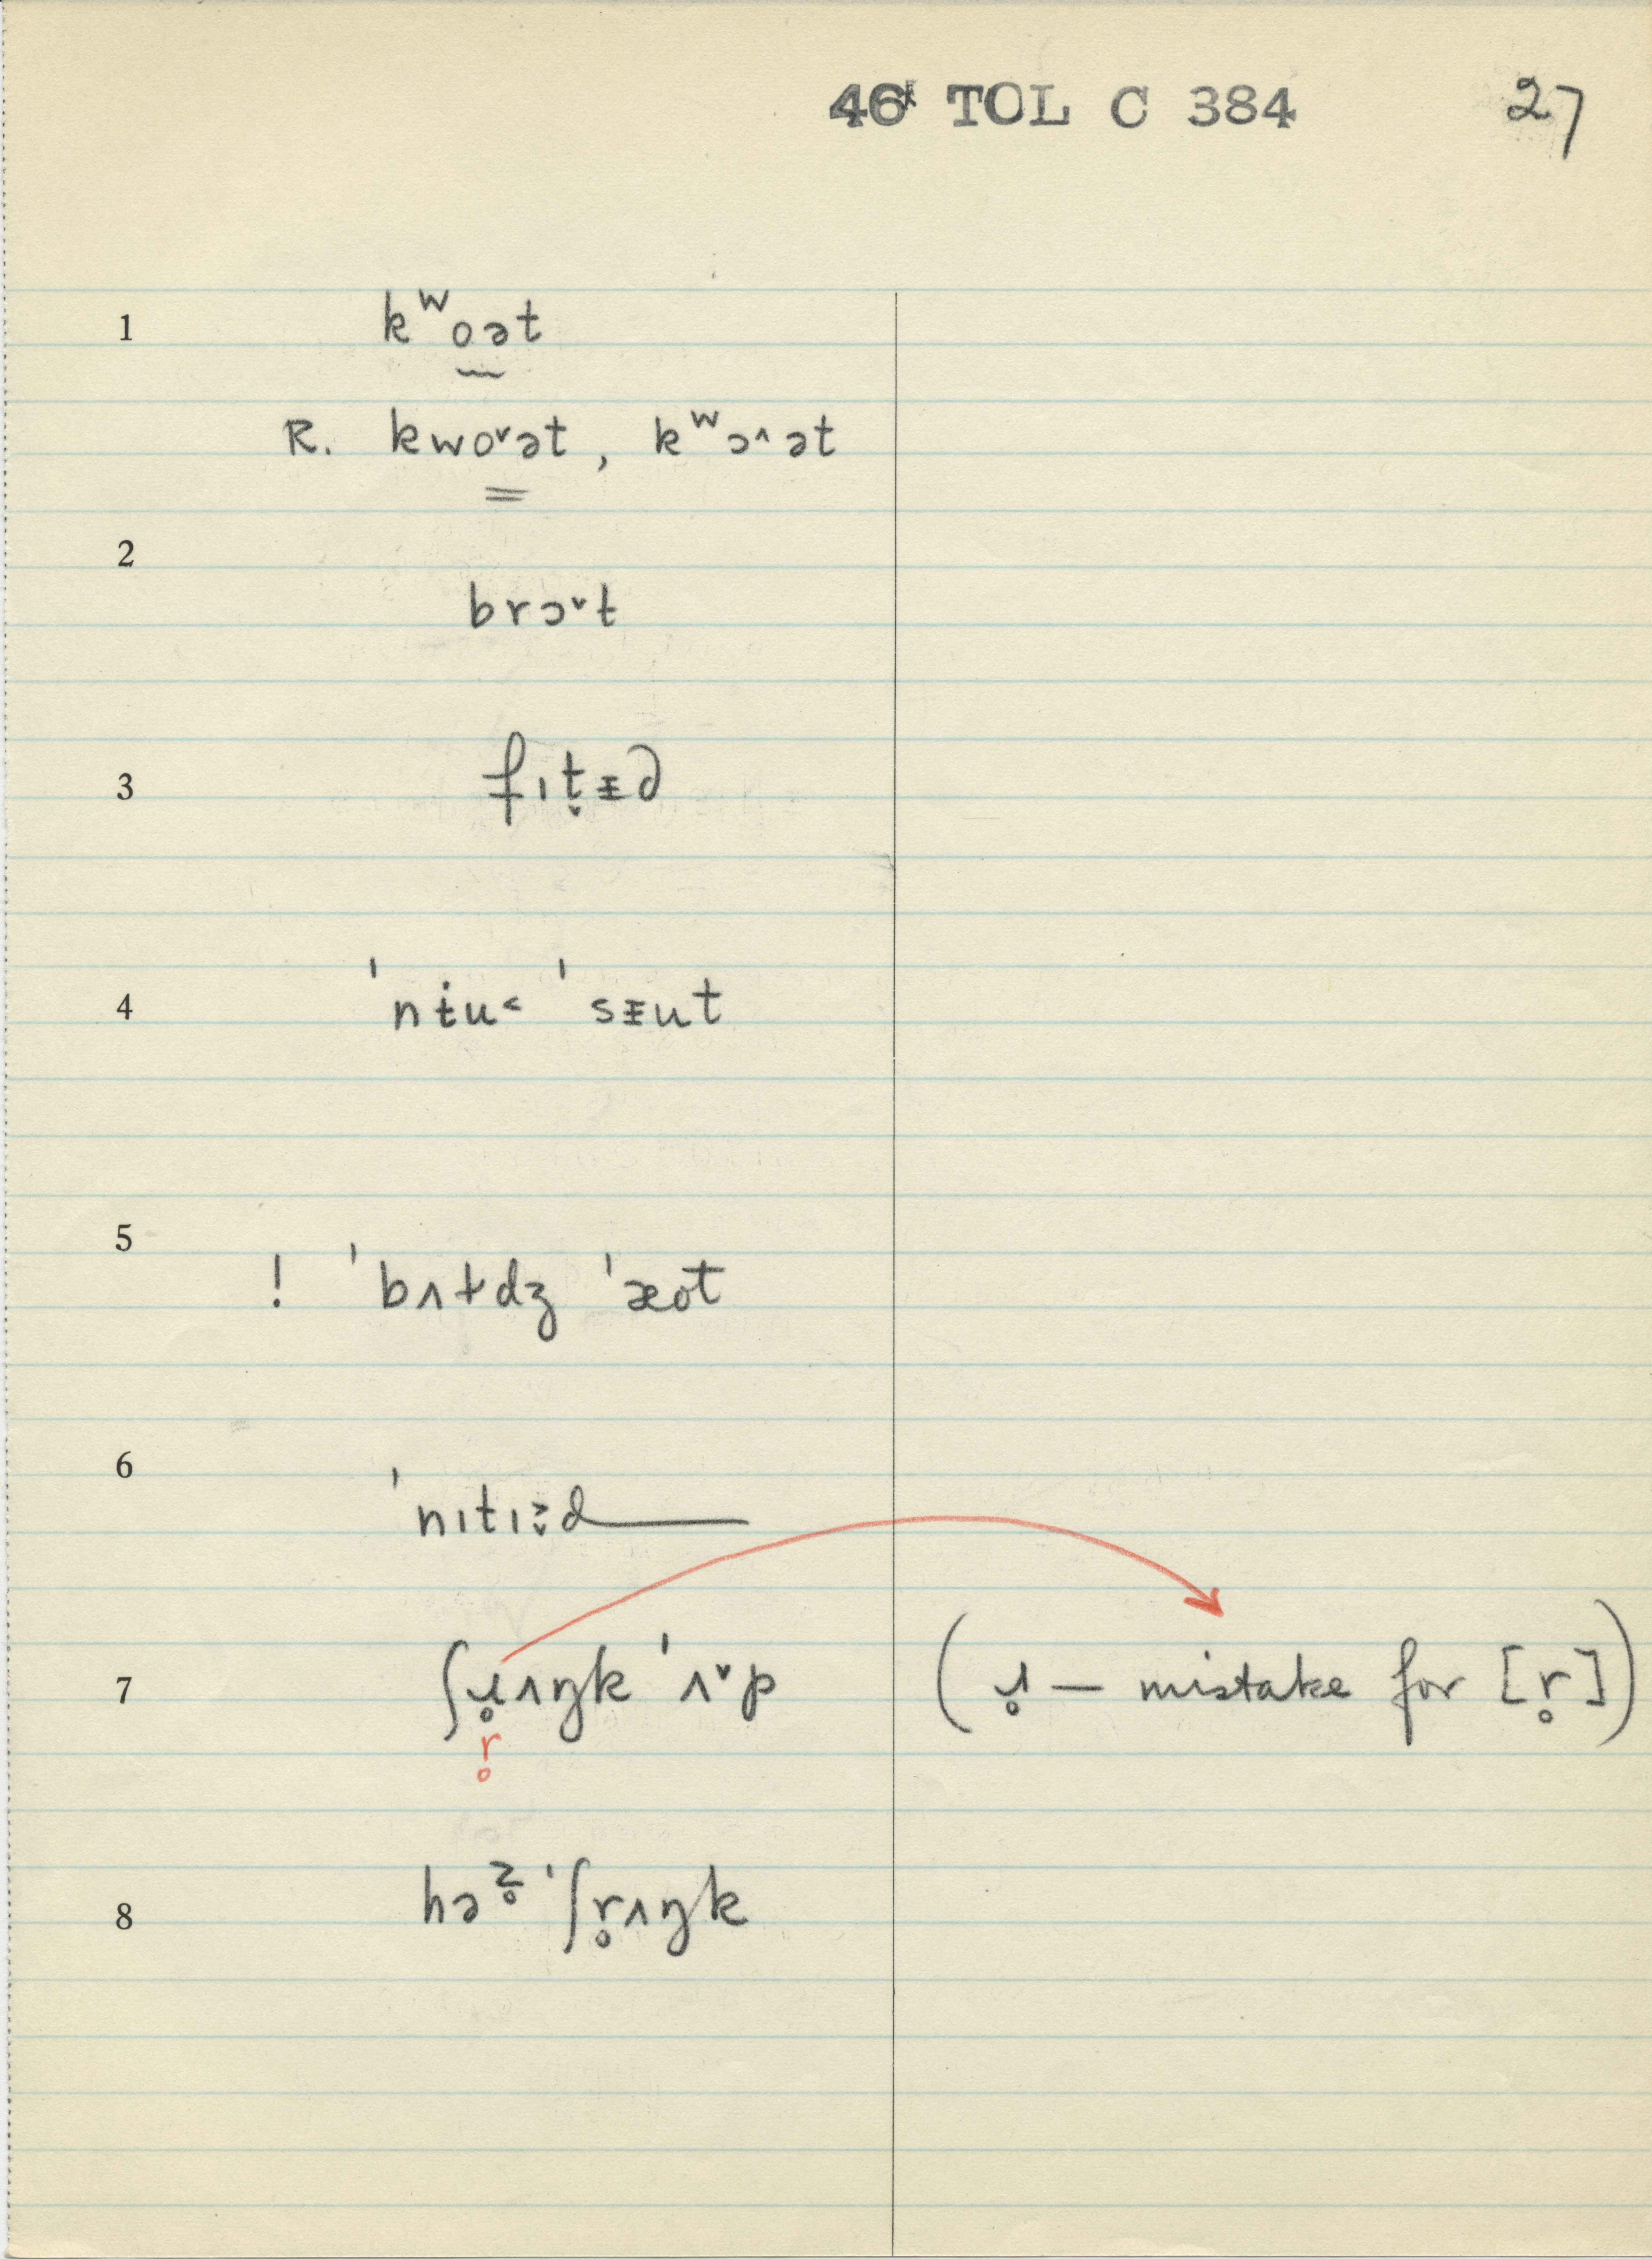 46ᴷ TOL C 384 27
1 kʷo̰ət
R. kwo˅ət, kʷɔ˄ət
2 brɔ˅t
3 fɪt̬ᵻd
4 ˈnɨu˂ ˈsᵻut
5 ! ˈbʌɫdʒ ˈæot
6 ˈnɪtɪz̬d
7 ʃɹ̥ʌŋk ˈʌ˅p (ɹ̥ — mistake for [r̥])
r̥
8 həᶻ̥ ˈʃr̥ʌŋk